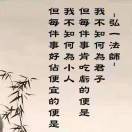 ～弘一法師～
我不知何為君子
但每件事肯吃虧的便是
我不知何為小人
但每件事好佔便宜的便是